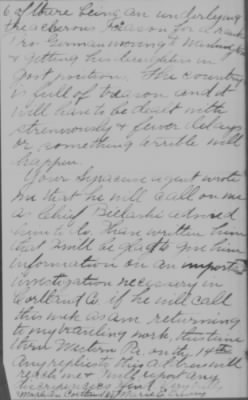 6 of there being an underlying
treacherous reason for a rank
Pro German moving to Washington
& getting his daughters in
Govt position. The country
is full of treason and it
will have to be dealt with
strenuously & fewer delays
or something terrible will
happen.
Your Syracuse agent wrote
me that he will call on me
as Chief Bielaski advised
him to do. I have written him
that I will be glad to give him
information on an important
investigation necessary in
Cortland Co if he will call
this week as am returning
to my traveling work, this time
thru Western Pa. on the 14th
Any replies to this at
reach me & I will report any